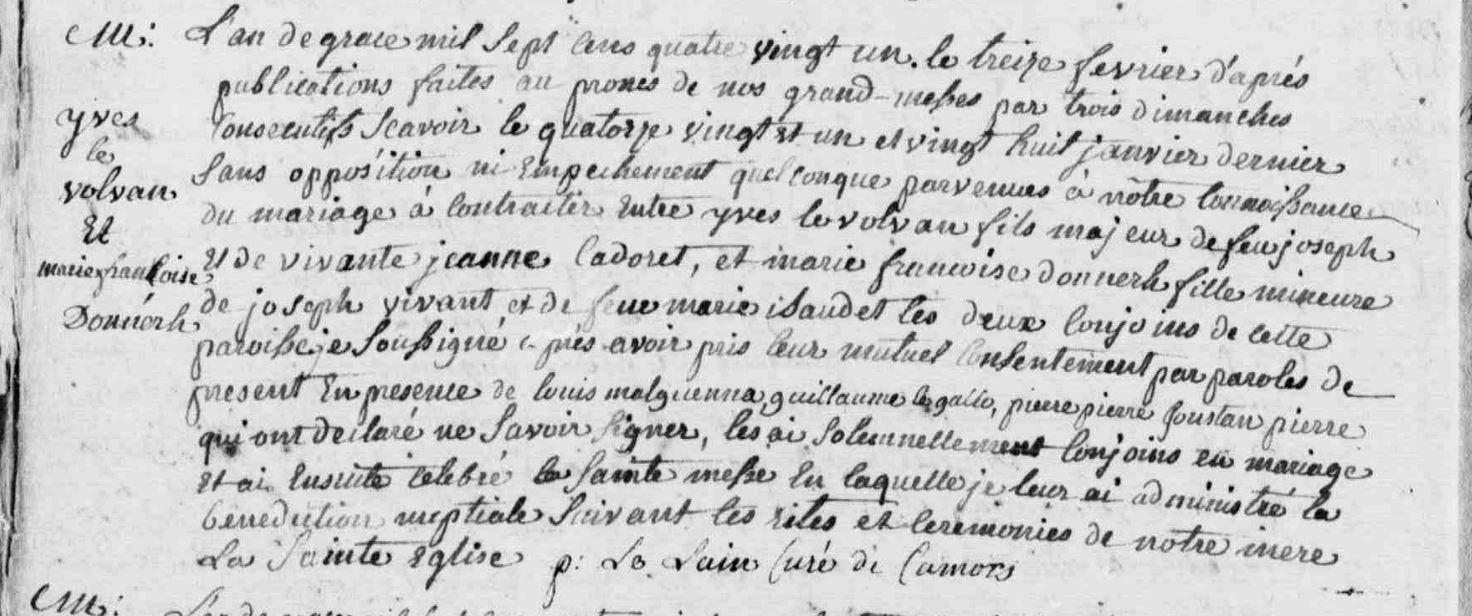 M:
yves
le
volvan
Et
marie francoise
Donnérh
L'an de grace mil sept cens quatre vingt un. le treize fevrier d'aprés
publications faites au prones de nos grand-messes par trois dimanches
consecutifs scavoir le quatorze vingt et un et vingt huit janvier dernier
sans opposition ni Empechement quelconque parvenues à nôtre connoissance
du mariage à contracter Entre yves le volvan fils majeur de feu joseph
et de vivante jeanne Cadoret, et marie francoise donnerh fille mineure
de joseph vivant et de feue marie isaudet les deux conjoins de cette
paroisse je soussigné aprés avoir pris leur mutuel consentement par paroles de
present En presence de louis malguenna, guillaume le gallo, pierre pierre joustan pierre
qui ont declaré ne savoir signer, les ai solennellement conjoins en mariage
et ai Ensuite celebré la sainte messe En laquelle je leur ai administré la
benediction nuptiale suivant les rites et ceremonies de notre mere
La Sainte Eglise p: Le Lain Curé de Camors
M: